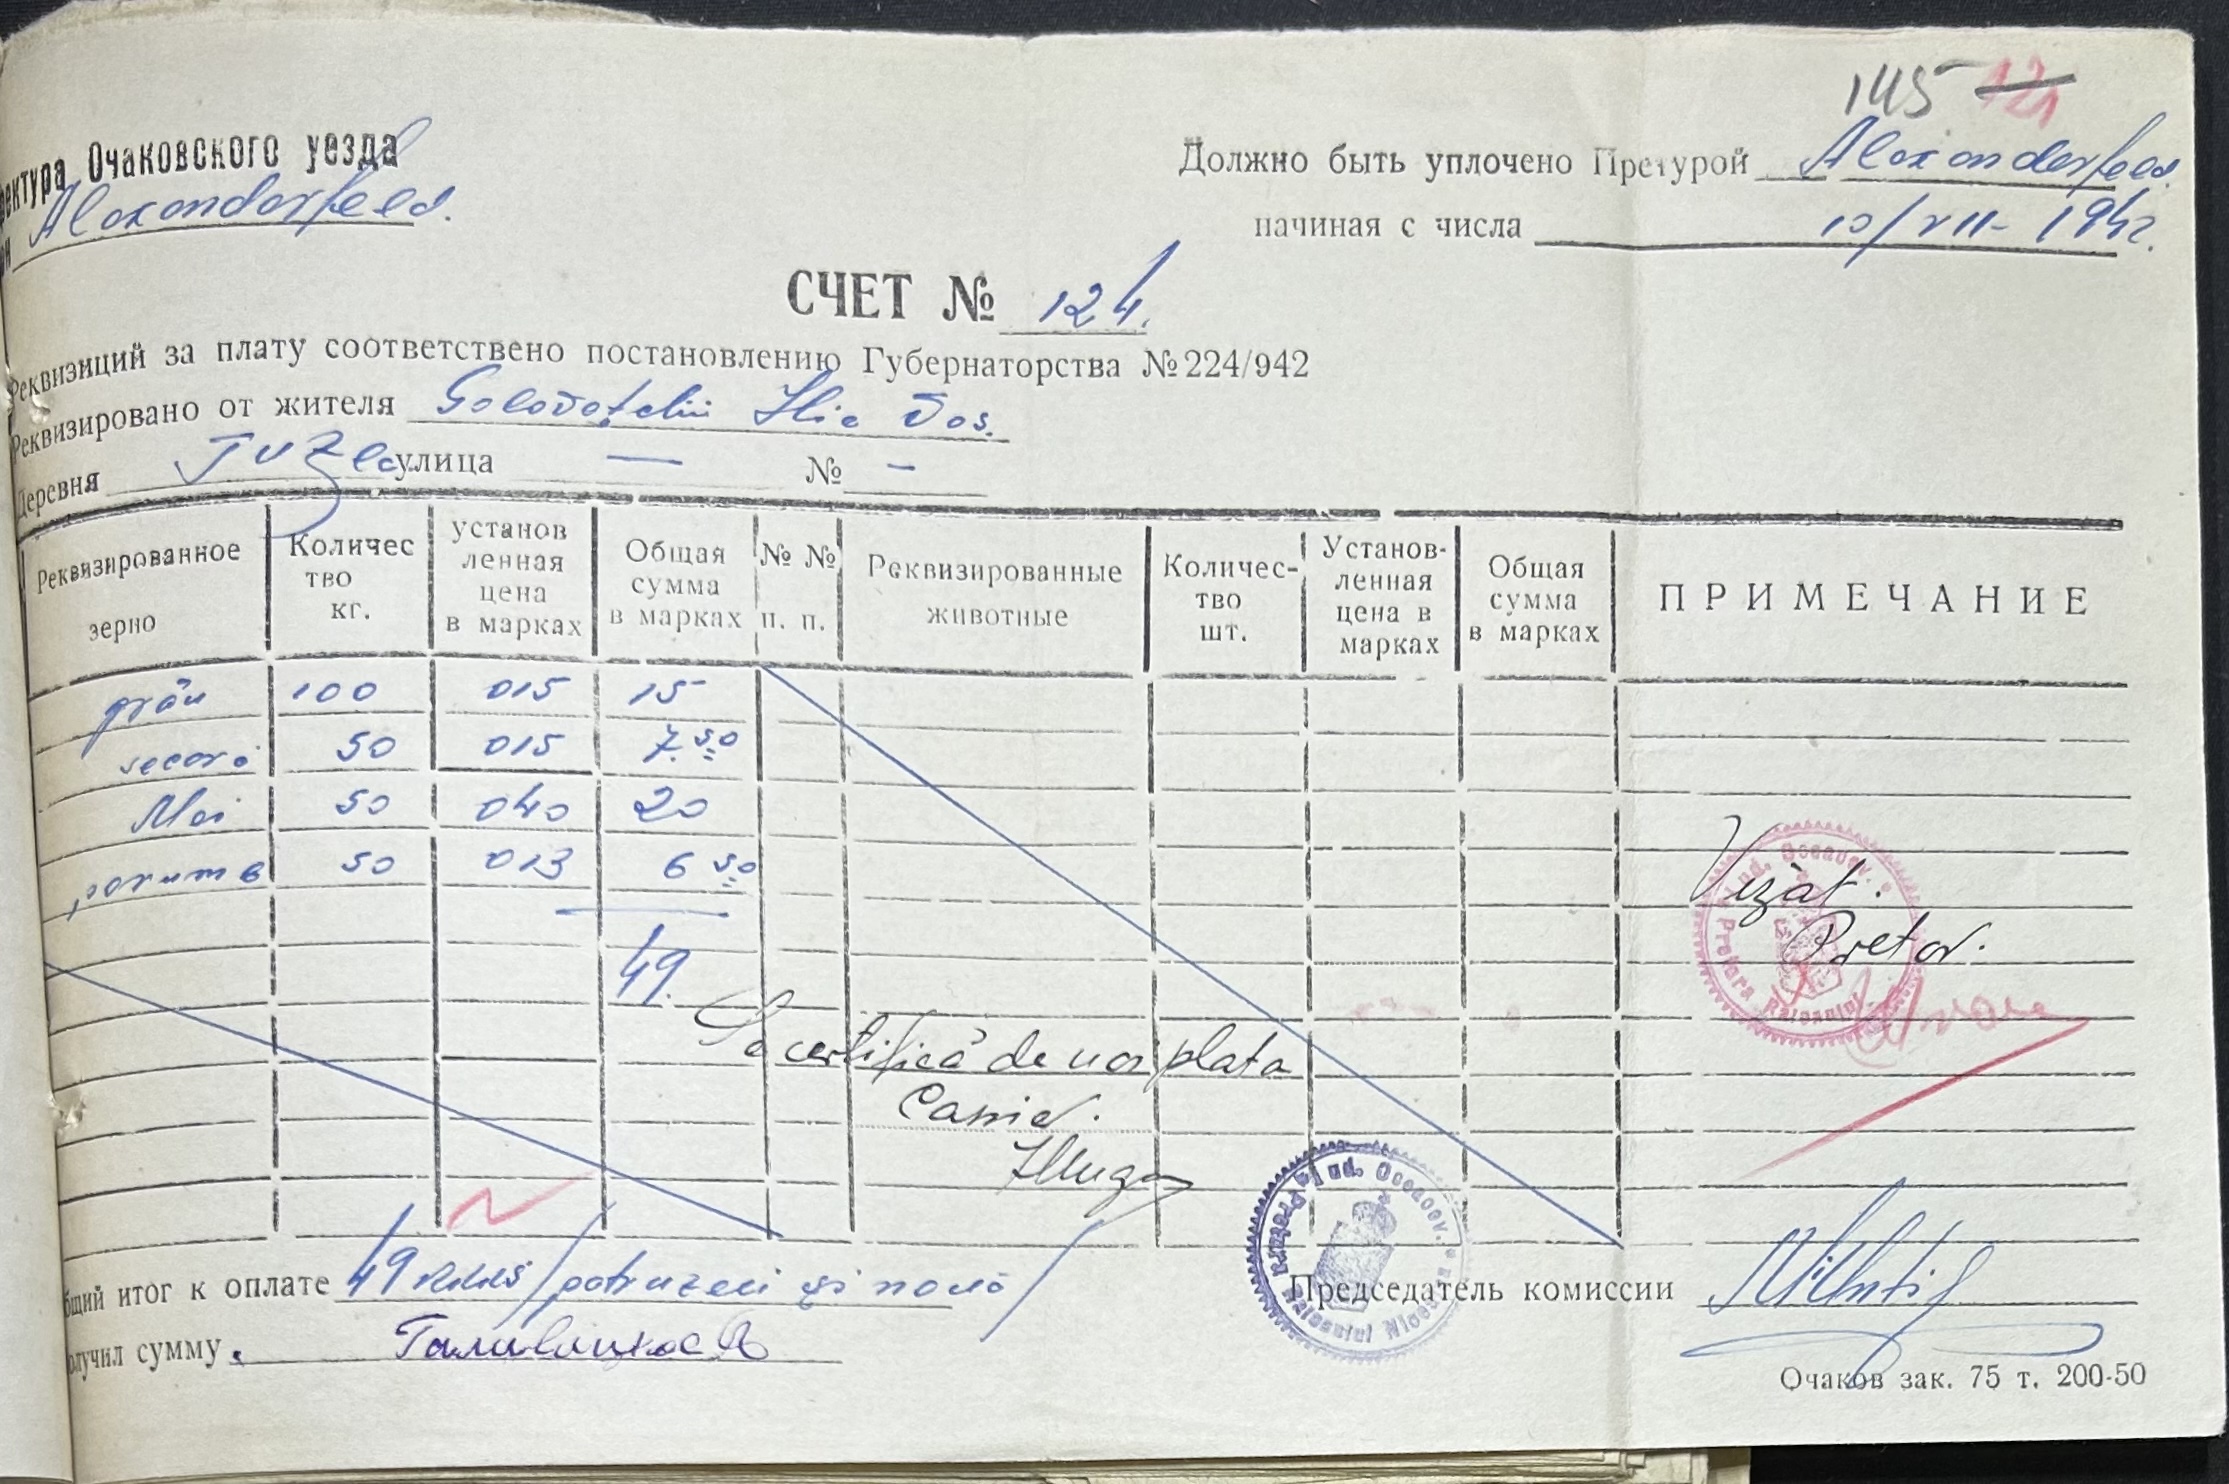 145 121
ректура Очаковского уезда
Alexanderfeld.
Должно быть уплочено Претурой Alexanderfeld
начиная с числа 10/VII-1942.
СЧЕТ № 124.
Реквизиций за плату соответствено постановлению Губернаторства №224/942
Реквизировано от жителя Golovațchii Ilie Dos.
Деревня Tuzle улица — № -
Реквизированное зерно Количество кг. установленная цена в марках Общая сумма в марках № № п. п. Реквизированные животные Количество шт. Установленная цена в марках Общая сумма в марках ПРИМЕЧАНИЕ
grâu 100 015 15
secară 50 015 7.50
Mei 50 040 20
porumb 50 013 6 50
49.
Vizat:
Pretor.
Se certifică de noi plata
Casier.
Общий итог к оплате 49 RKKS /patruzeci și nouă/
Председатель комиссии
олучил сумму
Pretura Raionului
Jud. Oceacov
Очаков зак. 75 т. 200-50